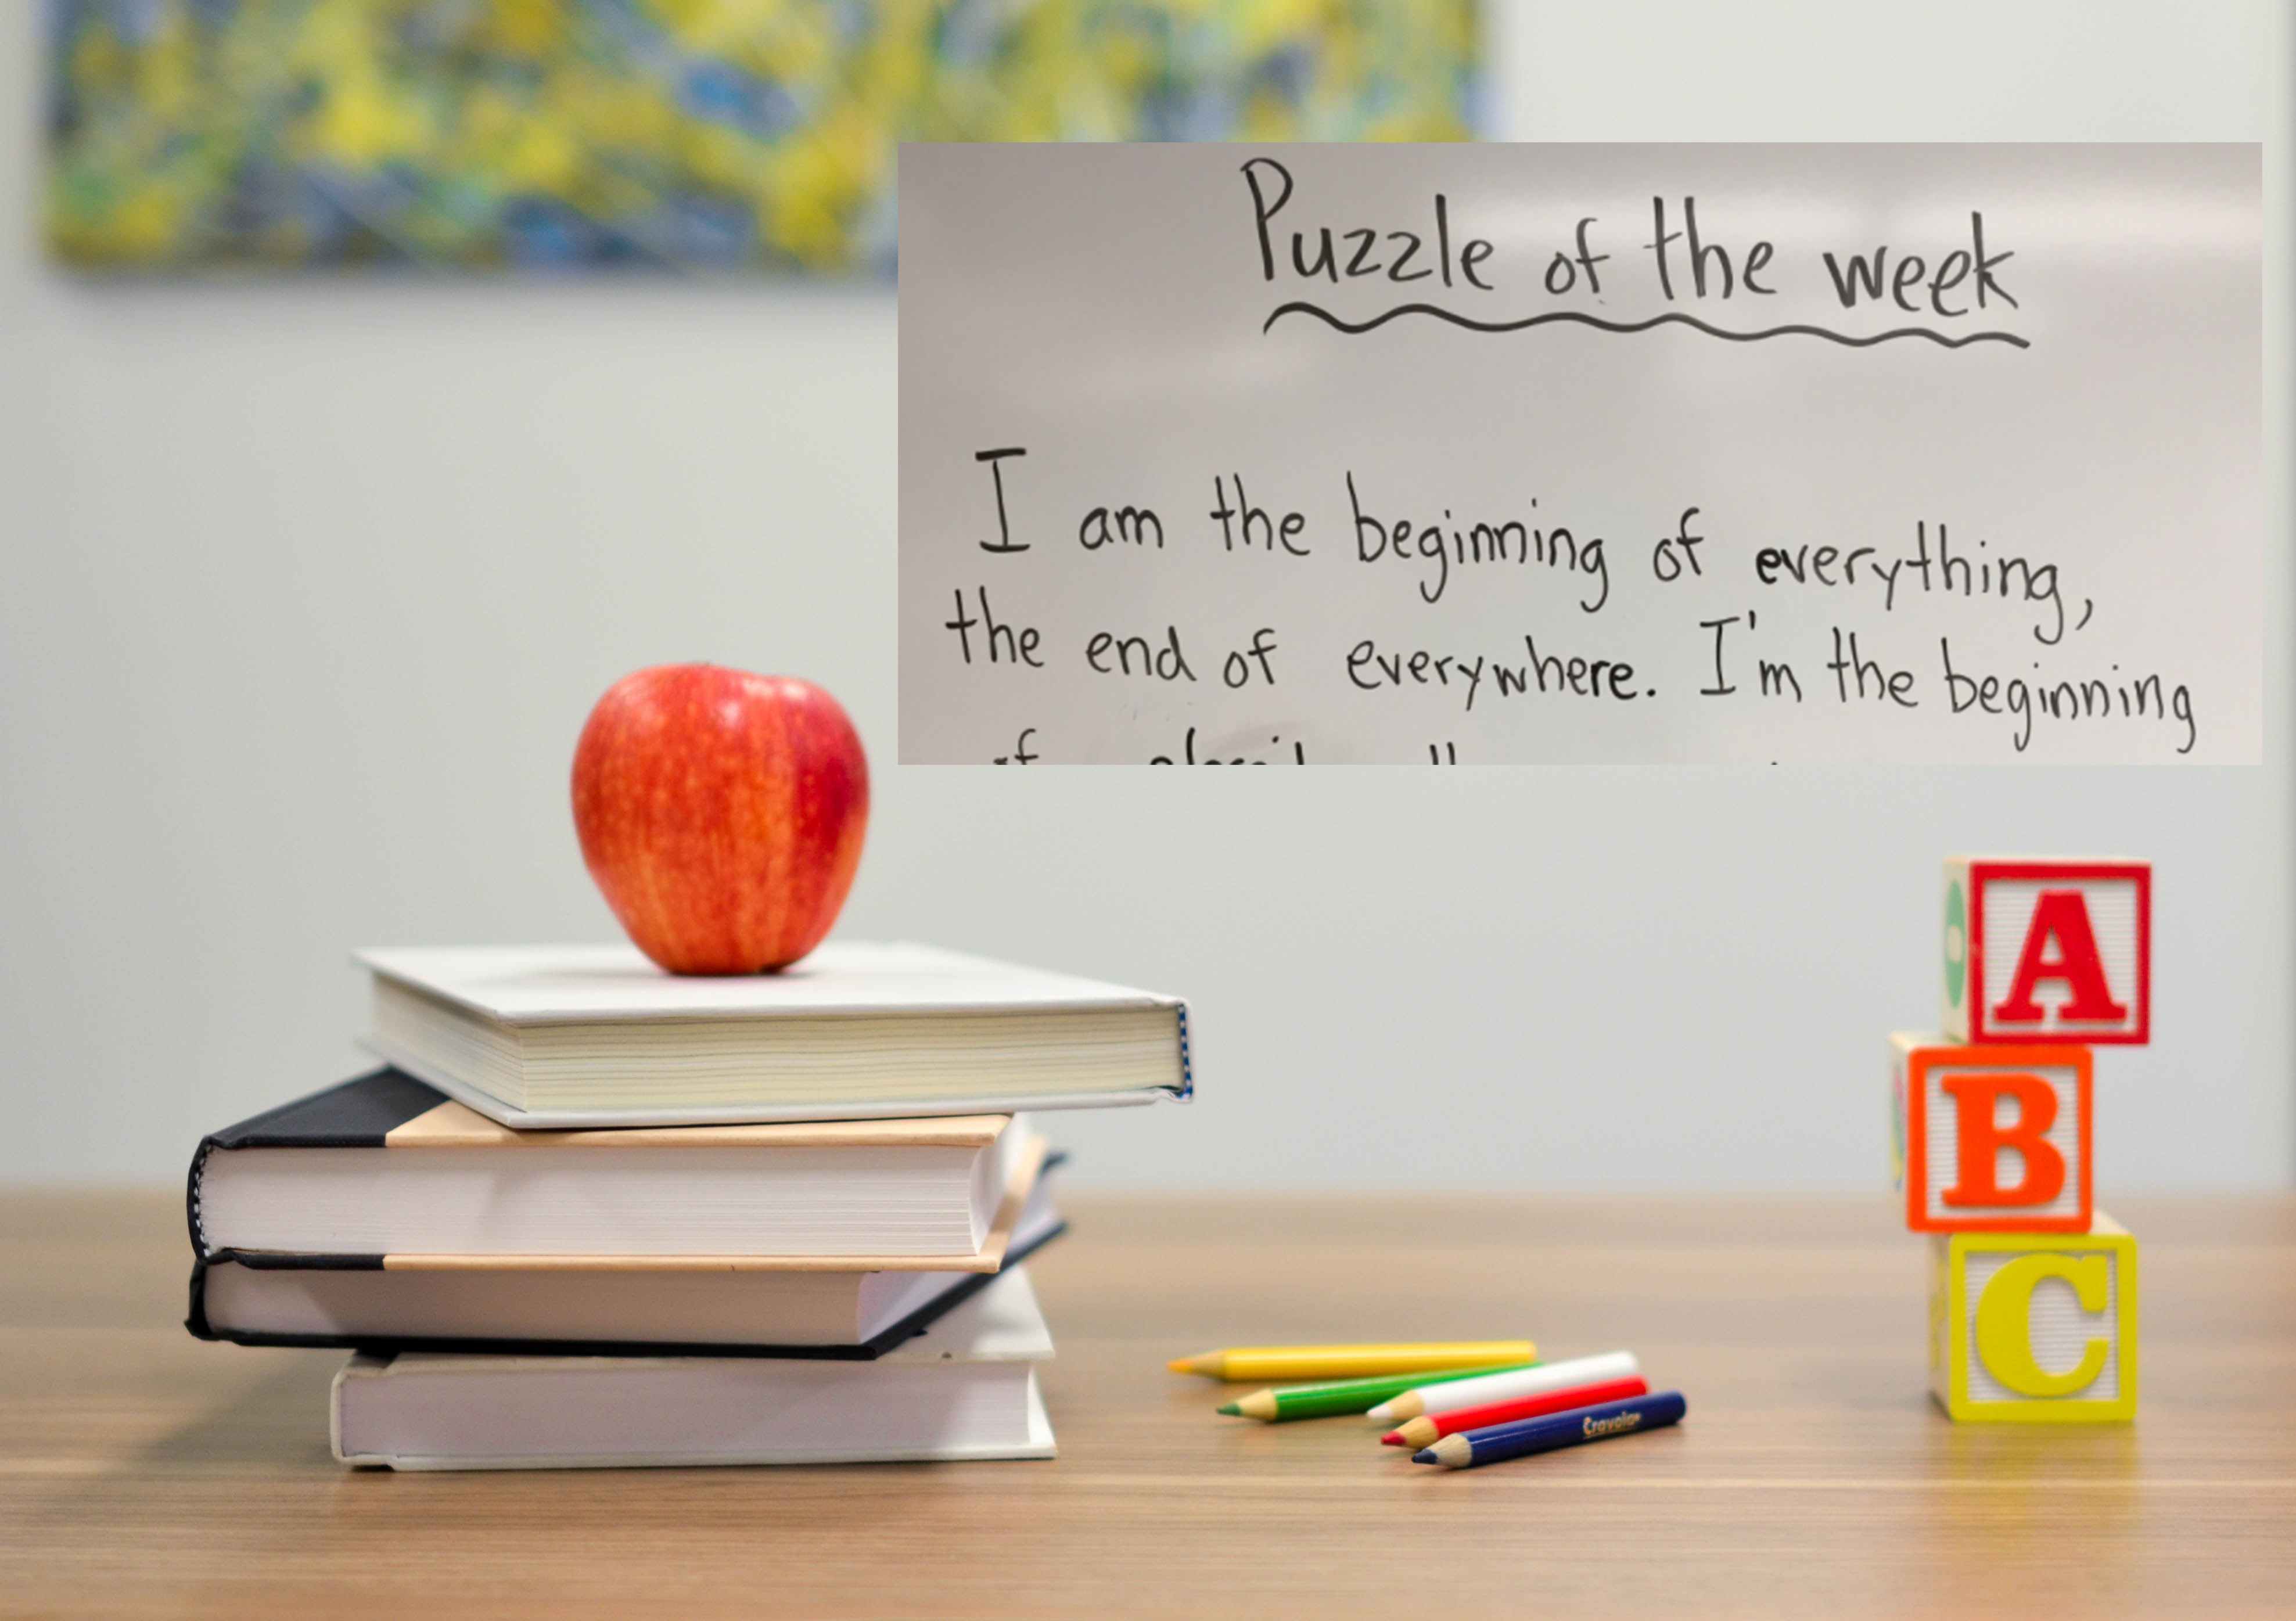 Puzzle of the week
I am the beginning of everything,
the end of everywhere. I'm the beginning
of
A
B
C
Crayola